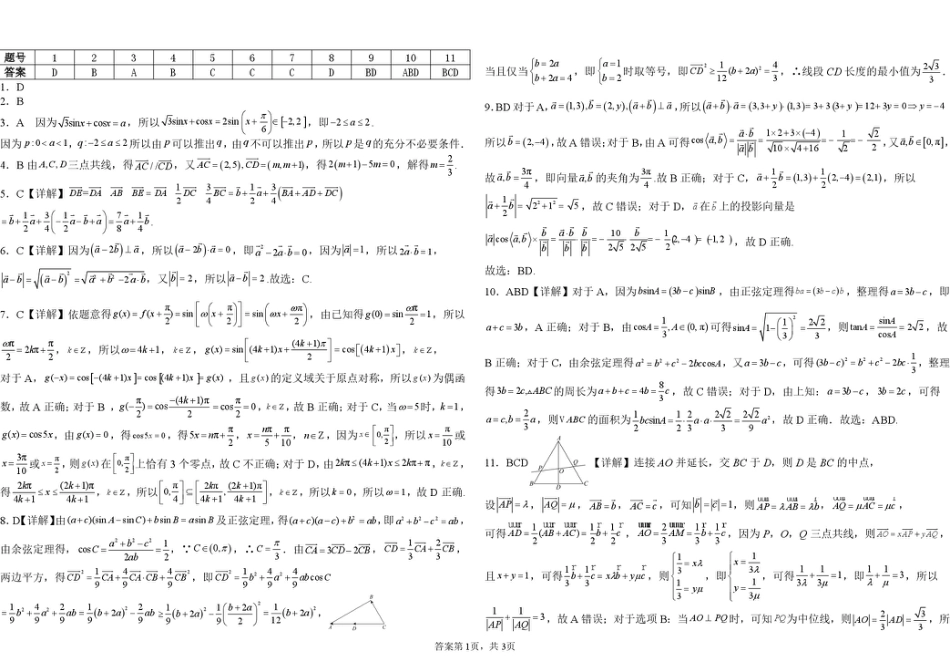 题号 1 2 3 4 5 6 7 8 9 10 11
答案 D B A B C C C D BD ABD BCD
1. D
2. B
3. A 因为√3sinx+cosx=a，所以√3sinx+cosx=2sin(x+π/6)∈[-2,2]，即-2≤a≤2.
因为p:0<a<1，q:-2≤a≤2所以由p可以推出q，由q不可以推出p，所以p是q的充分不必要条件.
4. B 由A,C,D三点共线，得AC//CD，又AC=(2,5), CD=(m,m+1)，得2(m+1)-5m=0，解得m=2/3.
5. C【详解】DE=DA AB BE=DA 1/2 DC 3/4 BC=b+1/2 a+3/4(BA+AD+DC)
=b+1/2 a+3/4(-1/2 a-b+a)=7/8 a+1/4 b.
6. C【详解】因为(a-2b)⊥a，所以(a-2b)·a=0，即a²-2a·b=0，因为|a|=1，所以2a·b=1，
|a-b|=√(a-b)²=√a²+b²-2a·b，又|b|=2，所以|a-b|=2.故选：C.
7. C【详解】依题意得g(x)=f(x+π/2)=sin[ω(x+π/2)]=sin(ωx+ωπ/2)，由已知得g(0)=sin ωπ/2=1，所以
ωπ/2=2kπ+π/2，k∈Z，所以ω=4k+1，k∈Z，g(x)=sin[(4k+1)x+(4k+1)π/2]=cos[(4k+1)x]，k∈Z，
对于A，g(-x)=cos[-(4k+1)x]=cos[(4k+1)x]=g(x)，且g(x)的定义域关于原点对称，所以g(x)为偶函
数，故A正确；对于B，g(-π/2)=cos -(4k+1)π/2=cos π/2=0，k∈Z，故B正确；对于C，当ω=5时，k=1，
g(x)=cos5x，由g(x)=0，得cos5x=0，得5x=nπ+π/2，x=nπ/5+π/10，n∈Z，因为x∈[0,π/2]，所以x=π/10或
x=3π/10或x=π/2，则g(x)在[0,π/2]上恰有3个零点，故C不正确；对于D，由2kπ≤(4k+1)x≤2kπ+π，k∈Z，
得2kπ/4k+1≤x≤(2k+1)π/4k+1，k∈Z，所以[0,π/4]⊆[2kπ/4k+1,(2k+1)π/4k+1]，k∈Z，所以k=0，所以ω=1，故D正确.
8. D【详解】由(a+c)(sinA-sinC)+bsinB=asinB及正弦定理，得(a+c)(a-c)+b²=ab，即a²+b²-c²=ab，
由余弦定理得，cosC=a²+b²-c²/2ab=1/2，∵C∈(0,π)，∴C=π/3. 由CA=3CD-2CB，CD=1/3 CA+2/3 CB，
两边平方，得CD²=1/9 CA²+4/9 CA·CB+4/9 CB²，即CD²=1/9 b²+4/9 a²+4/9 abcosC
=1/9 b²+4/9 a²+2/9 ab=1/9(b+2a)²-2/9 ab≥1/9(b+2a)²-1/9(b+2a/2)²=1/12(b+2a)²，
B
A D C
当且仅当{b=2a b+2a=4，即{a=1 b=2时取等号，即CD²≥1/12(b+2a)²=4/3，∴线段CD长度的最小值为2√3/3.
9. BD 对于A，a=(1,3),b=(2,y),(a+b)⊥a，所以(a+b)·a=(3,3+y)·(1,3)=3+3(3+y)=12+3y=0⇒y=-4
所以b=(2,-4)，故A错误；对于B，由A可得cos⟨a,b⟩=a·b/|a||b|=1×2+3×(-4)/√10×√4+16=-1/√2=-√2/2，又⟨a,b⟩∈[0,π]，
故⟨a,b⟩=3π/4，即向量a,b的夹角为3π/4.故B正确；对于C，a+1/2 b=(1,3)+1/2(2,-4)=(2,1)，所以
|a+1/2 b|=√2²+1²=√5，故C错误；对于D，a在b上的投影向量是
|a|cos⟨a,b⟩×b/|b|=a·b/|b| b/|b|=-10/2√5 b/2√5=-1/2(2,-4)=(-1,2)，故D正确.
故选：BD.
10. ABD【详解】对于A，因为bsinA=(3b-c)sinB，由正弦定理得ba=(3b-c)b，整理得a=3b-c，即
a+c=3b，A正确；对于B，由cosA=1/3,A∈(0,π)可得sinA=√1-(1/3)²=2√2/3，则tanA=sinA/cosA=2√2，故
B正确；对于C，由余弦定理得a²=b²+c²-2bccosA，又a=3b-c，可得(3b-c)²=b²+c²-2bc·1/3，整理
得3b=2c,△ABC的周长为a+b+c=4b=8/3 c，故C错误；对于D，由上知：a=3b-c，3b=2c，可得
a=c,b=2/3 a，则∇ABC的面积为1/2 bcsinA=1/2·2/3 a·a·2√2/3=2√2/9 a²，故D正确. 故选：ABD.
11. BCD 【详解】连接AO并延长，交BC于D，则D是BC的中点，
A
P O Q
B D C
设|AP|=λ，|AQ|=μ，AB=b，AC=c，可知|b|=|c|=1，则AP=λAB=λb，AQ=μAC=μc，
可得AD=1/2(AB+AC)=1/2 b+1/2 c，AO=2/3 AM=1/3 b+1/3 c，因为P，O，Q三点共线，则AO=xAP+yAQ，
且x+y=1，可得1/3 b+1/3 c=xλb+yμc，则{1/3=xλ 1/3=yμ，即{x=1/3λ y=1/3μ，可得1/3λ+1/3μ=1，即1/λ+1/μ=3，所以
1/|AP|+1/|AQ|=3，故A错误；对于选项B：当AO⊥PQ时，可知PQ为中位线，则|AO|=2/3|AD|=√3/3，所
答案第1页，共3页